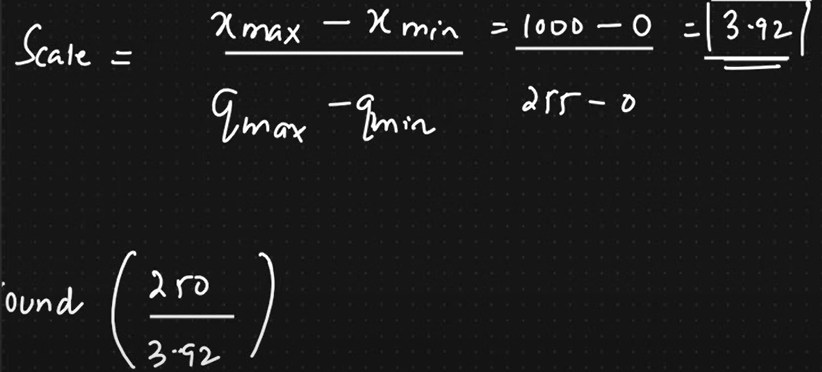 Scale = (x max - x min) / (q max - q min) = (1000 - 0) / (255 - 0) = 3.92
ound (250 / 3.92)